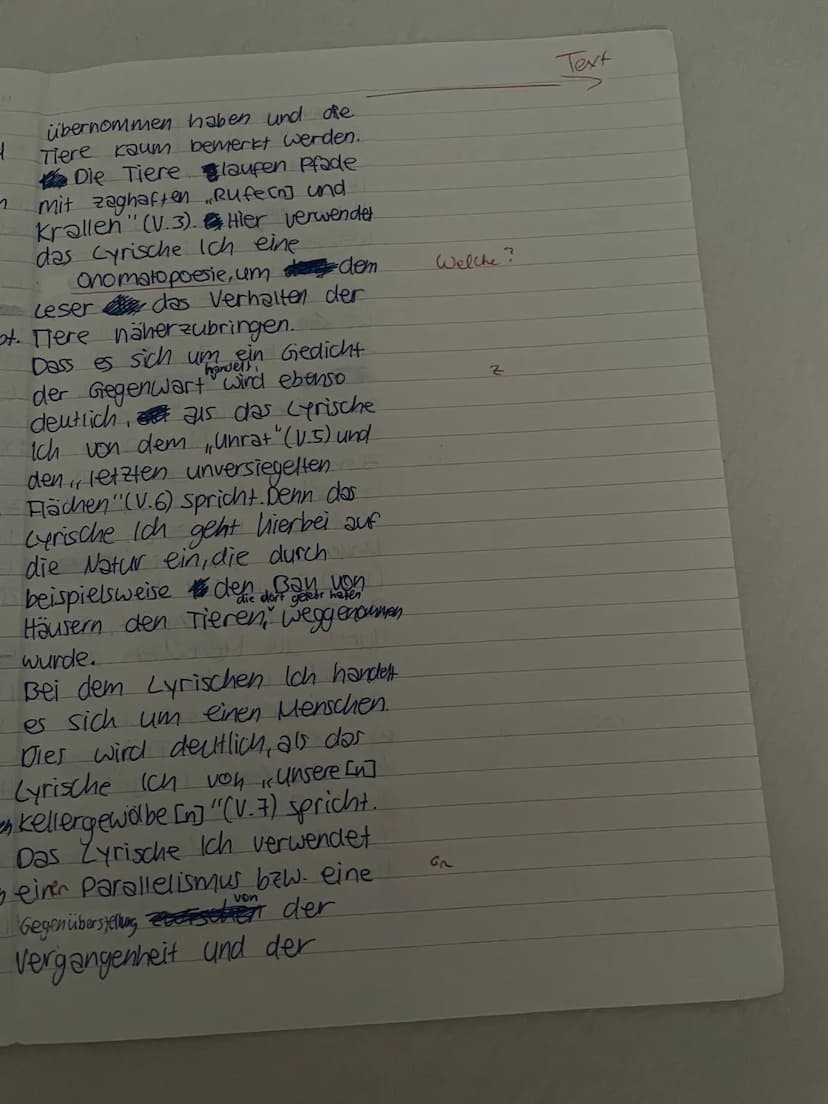 Text
übernommen haben und die
Tiere kaum bemerkt werden.
Die Tiere laufen Pfade
mit zaghaften „Rufe[n] und
Krallen" (V.3). Hier verwendet
das Lyrische Ich eine
Onomatopoesie, um dem Welche?
Leser das Verhalten der
ot. Tiere näherzubringen.
Dass es sich um ein Gedicht
handelt,
der Gegenwart wird ebenso z
deutlich, als das Lyrische
Ich von dem „Unrat" (V.5) und
den „letzten unversiegelten
Flächen" (V.6) spricht. Denn das
Lyrische Ich geht hierbei auf
die Natur ein, die durch
beispielsweise den Bau von
die dort gelebt haben
Häusern den Tieren, weggenommen
wurde.
Bei dem Lyrischen Ich handelt
es sich um einen Menschen.
Dies wird deutlich, als das
Lyrische Ich von „unsere[n]
Kellergewölbe[n]" (V.7) spricht.
Das Lyrische Ich verwendet
einen Parallelismus bzw. eine Gr
von
Gegenüberstellung der
Vergangenheit und der